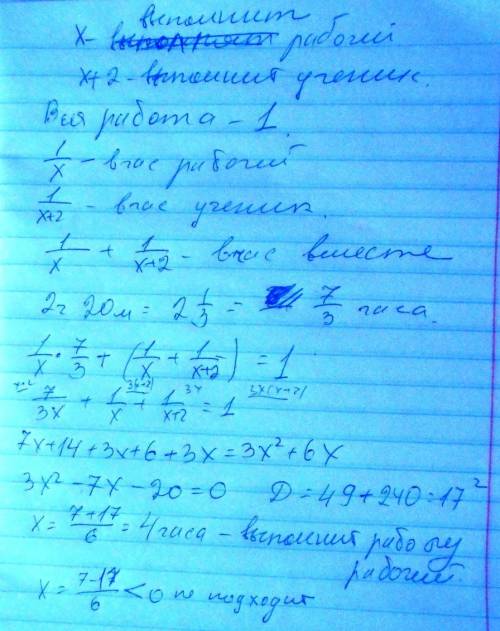 выполнит
x - рабочий
x+2 - выполнит ученик.
Вся работа - 1.
1/x - в час рабочий
1/(x+2) - в час ученик.
1/x + 1/(x+2) - в час вместе
2ч 20м = 2 1/3 = 7/3 часа.
1/x · 7/3 + (1/x + 1/(x+2)) = 1
x+2 3(x+2) 3x 3x(x+2)
7/3x + 1/x + 1/(x+2) = 1
7x+14+3x+6+3x=3x²+6x
3x²-7x-20=0 D=49+240=17²
x = (7+17)/6 = 4 часа - выполнит работу
рабочий
x = (7-17)/6 < 0 не подходит